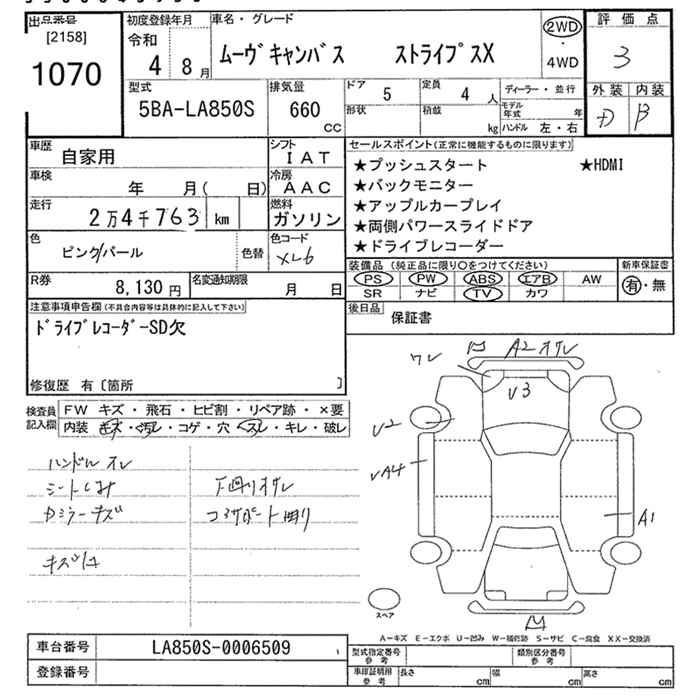 出品番号
[2158]
1070
初度登録年月
令和
4 8月
車名・グレード
ムーヴキャンバス ストライプスX
2WD
・
4WD
評価点
3
外装 内装
D B
型式
5BA-LA850S
排気量
660
CC
ドア 5
定員 4 人
形状
積載
kg
ディーラー・並行
モデル年式 年
ハンドル 左・右
車歴
自家用
シフト
IAT
車検
年 月( 日)
冷房
AAC
走行
2万4千763 km
燃料
ガソリン
色
ピンク/パール
色替
色コード
XL6
R券
8,130円
名変通知期限
月 日
セールスポイント(正常に機能するものに限ります)
★プッシュスタート ★HDMI
★バックモニター
★アップルカープレイ
★両側パワースライドドア
★ドライブレコーダー
装備品(純正品に限り○をつけてください)
PS PW ABS エアB AW
SR ナビ TV カワ
新車保証書
有・無
後日品
保証書
注意事項申告欄(不具合内容等は具体的に記入して下さい)
ドライブレコーダーSD欠
修復歴 有〔箇所 〕
検査員記入欄
FW キズ・飛石・ヒビ割・リペア跡・×要
内装 キズ・汚れ・コゲ・穴・スレ・キレ・破レ
ハンドル スレ
シートしみ
キズ
下廻りサビ
コアサポート曲り
ワレ
A2
V3
U2
A1
スペア
A－キズ E－エクボ U－凹み W－補修跡 S－サビ C－腐食 XX－交換済
車台番号
LA850S-0006509
登録番号
型式指定番号
参考
類別区分番号
参考
車庫証明用
参考
長さ cm
幅 cm
高さ cm